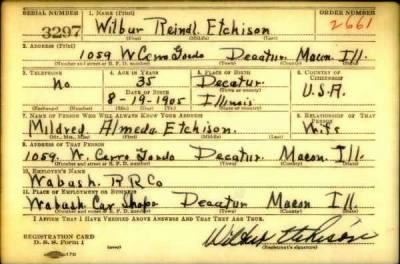 SERIAL NUMBER 1. NAME (Print) ORDER NUMBER
3297 Wilbur Reindl Etchison 2661
(First) (Middle) (Last)
2. ADDRESS (Print)
1059 W Cerro Gordo Decatur Macon Ill.
(Number and street or R. F. D. number) (Town) (County) (State)
3. TELEPHONE 4. AGE IN YEARS 5. PLACE OF BIRTH 6. COUNTRY OF CITIZENSHIP
No 35 Decatur
DATE OF BIRTH (Town or county)
8-19-1905 Illinois U.S.A.
(Exchange) (Number) (Mo.) (Day) (Yr.) (State or country)
7. NAME OF PERSON WHO WILL ALWAYS KNOW YOUR ADDRESS 8. RELATIONSHIP OF THAT PERSON
Mildred Almeda Etchison. Wife
(Mr., Mrs., Miss) (First) (Middle) (Last)
9. ADDRESS OF THAT PERSON
1059. W. Cerro Gordo Decatur. Macon. Ill.
(Number and street or R. F. D. number) (Town) (County) (State)
10. EMPLOYER'S NAME
Wabash. R R Co
11. PLACE OF EMPLOYMENT OR BUSINESS
Wabash Car Shops Decatur Macon Ill.
(Number and street or R. F. D. number) (Town) (County) (State)
I AFFIRM THAT I HAVE VERIFIED ABOVE ANSWERS AND THAT THEY ARE TRUE.
REGISTRATION CARD
D. S. S. Form 1 Wilbur Etchison
(Registrant's signature)